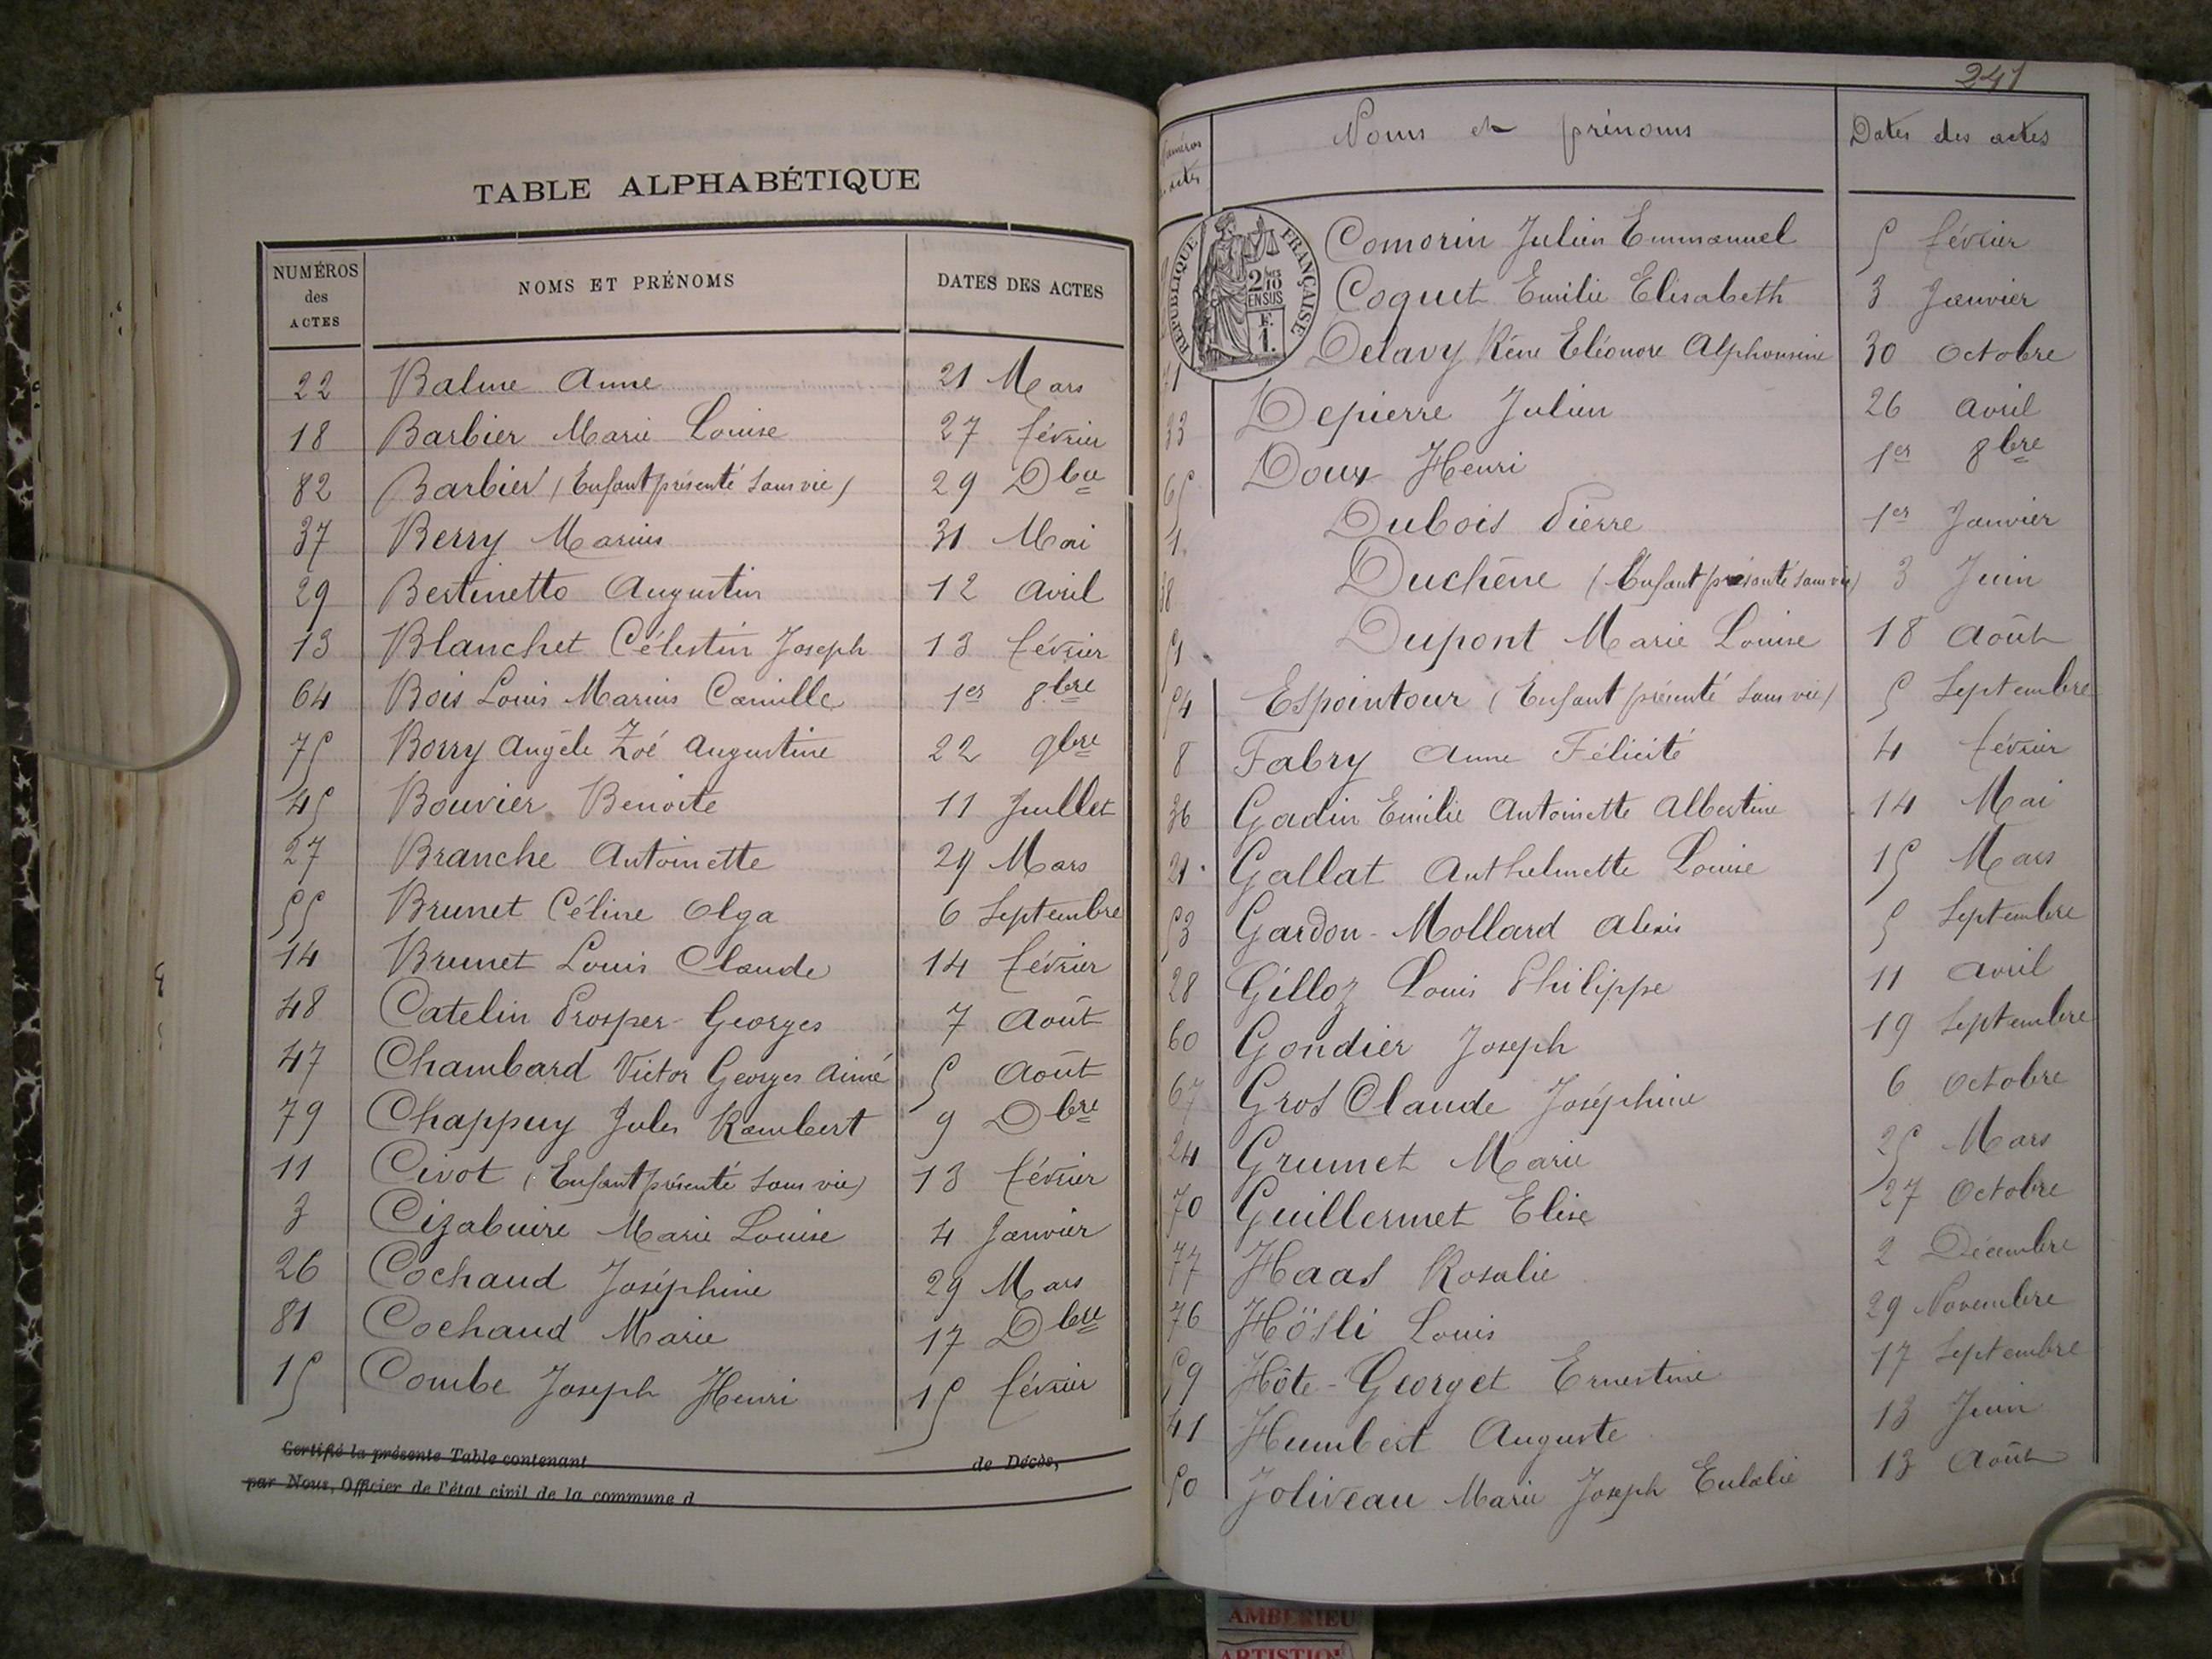 TABLE ALPHABÉTIQUE
NUMÉROS des ACTES NOMS ET PRÉNOMS DATES DES ACTES
22 Balme Anne 21 Mars
18 Barbier Marie Louise 27 février
82 Barbier (Enfant présenté sans vie) 29 Dbre
37 Berry Marius 31 Mai
29 Bestinetto Augustin 12 Avril
13 Blanchet Célestin Joseph 13 février
64 Bois Louis Marius Camille 1er 8bre
75 Borry Angèle Zoé Augustine 22 9bre
45 Bouvier Benoite 11 Juillet
27 Branche Antoinette 29 Mars
55 Brunet Céline Olga 6 Septembre
14 Brunet Louis Claude 14 février
48 Catelin Prosper Georges 7 Août
47 Chambard Victor Georges Aimé 5 Août
79 Chappuy Jules Rambert 9 Dbre
11 Civot (Enfant présenté sans vie) 13 février
3 Cizabuire Marie Louise 4 Janvier
26 Cochaud Joséphine 29 Mars
81 Cochaud Marie 17 Dbre
15 Combe Joseph Henri 15 février
Certifié la présente Table contenant de Décès,
par Nous, Officier de l'état civil de la commune d
241
Numéros actes Noms et prénoms Dates des actes
RÉPUBLIQUE FRANÇAISE
2/10 EN SUS
F. 1.
Comorin Julien Emmanuel 5 février
Coquet Emilie Elisabeth 3 Janvier
71 Delavy Réne Eléonore Alphonsine 30 Octobre
33 Depierre Julien 26 Avril
65 Doux Henri 1er 8bre
1 Dubois Pierre 1er Janvier
38 Duchêne (Enfant présenté sans vie) 3 Juin
Dupont Marie Louise 18 Août
54 Espointour (Enfant présenté sans vie) 5 Septembre
8 Fabry Anne Félicité 4 février
36 Gadin Emilie Antoinette Albertine 14 Mai
21 Gallat Anthelmette Louise 15 Mars
53 Gardon-Mollard Alexis 5 Septembre
28 Gilloz Louis Philippe 11 Avril
60 Gondier Joseph 19 Septembre
67 Gros Claude Joséphine 6 Octobre
24 Grumet Marie 25 Mars
70 Guillermet Elise 27 Octobre
77 Haas Rosalie 2 Décembre
76 Hösli Louis 29 Novembre
59 Hôte-Georget Ernestine 17 Septembre
41 Humbert Auguste 13 Juin
50 Joliveau Marie Joseph Eulalie 13 Août
AMBERIEU
ARTISTIQU